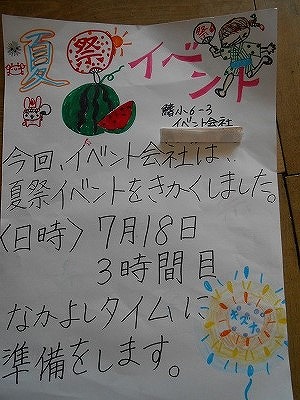 夏祭イベント
鱗小6-3
イベント会社
今回、イベント会社は、
夏祭イベントをきかくしました。
〈日時〉7月18日
3時間目
なかよしタイムに
準備をします。
キズナ